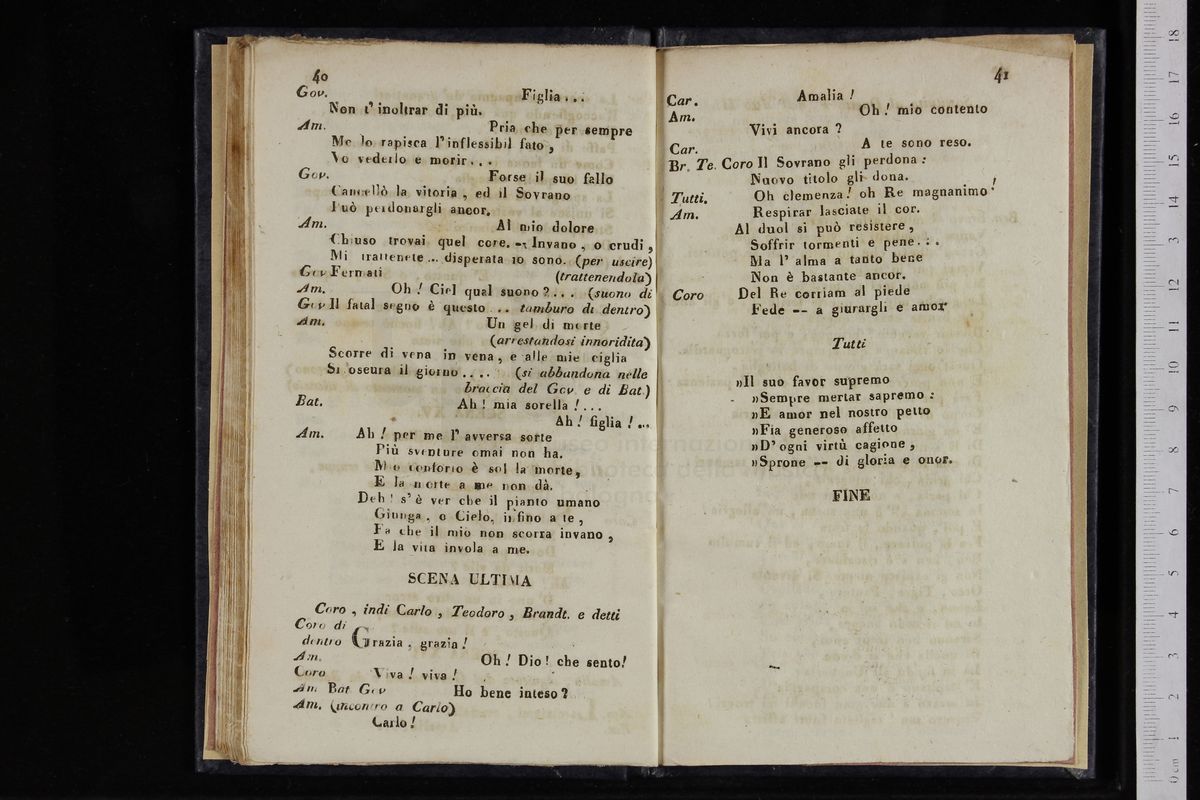 40
Gov. Figlia...
Non t' inoltrar di più.
Am. Pria che per sempre
Me lo rapisca l'inflessibil fato,
Vo vederlo e morir...
Gov. Forse il suo fallo
Cancellò la vitoria, ed il Sovrano
Può perdonargli ancor.
Am. Al mio dolore
Chiuso trovai quel core. - Invano, o crudi,
Mi trattenete... disperata io sono. (per uscire)
Gov Fermati (trattenendola)
Am. Oh! Ciel qual suono?... (suono di
Gov Il fatal segno è questo... tamburo di dentro)
Am. Un gel di morte
(arrestandosi innoridita)
Scorre di vena in vena, e alle mie ciglia
Si oscura il giorno.... (si abbandona nelle
braccia del Gov. e di Bat.)
Bat. Ah! mia sorella!...
Ah! figlia!...
Am. Ah! per me l'avversa sorte
Più sventure omai non ha.
Mio conforto è sol la morte,
E la morte a me non dà.
Deh! s'è ver che il pianto umano
Giunga, o Cielo, infino a te,
Fa che il mio non scorra invano,
E la vita invola a me.
SCENA ULTIMA
Coro, indi Carlo, Teodoro, Brandt. e detti
Coro di
dentro Grazia, grazia!
Am. Oh! Dio! che sento!
Coro Viva! viva!
Am. Bat Gov Ho bene inteso?
Am. (incontro a Carlo)
Carlo!
41
Car. Amalia!
Am. Oh! mio contento
Vivi ancora?
Car. A te sono reso.
Br. Te. Coro Il Sovrano gli perdona:
Nuovo titolo gli dona.
Tutti. Oh clemenza! oh Re magnanimo!
Am. Respirar lasciate il cor.
Al duol si può resistere,
Soffrir tormenti e pene...
Ma l'alma a tanto bene
Non è bastante ancor.
Coro Del Re corriam al piede
Fede -- a giurargli e amor
Tutti
»Il suo favor supremo
»Sempre mertar sapremo:
»E amor nel nostro petto
»Fia generoso affetto
»D'ogni virtù cagione,
»Sprone -- di gloria e onor.
FINE
0 cm 1 2 3 4 5 6 7 8 9 10 11 12 13 14 15 16 17 18